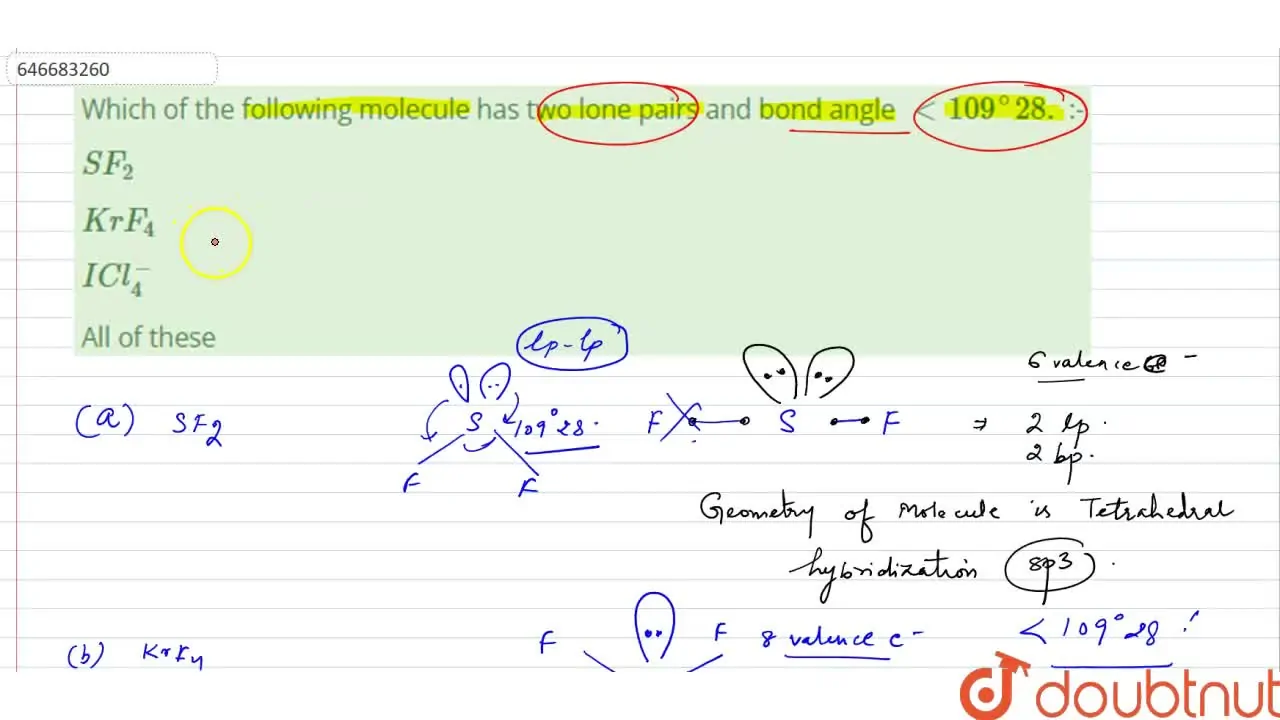 646683260
Which of the following molecule has two lone pairs and bond angle < 109°28. :-
SF₂
KrF₄
ICl₄⁻
All of these
lp-lp
6 valence e⁻
(a) SF₂
S 109°28.
F S F ⇒ 2 lp.
2 bp.
F F
Geometry of Molecule is Tetrahedral
hybridization sp3.
(b) KrF₄
F F 8 valence e⁻ < 109°28
doubtnut